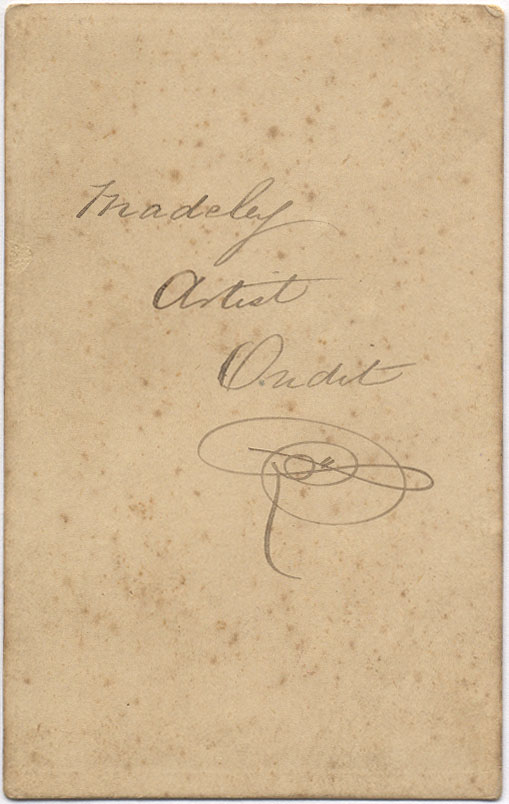 Madeley
Artist
Ondit